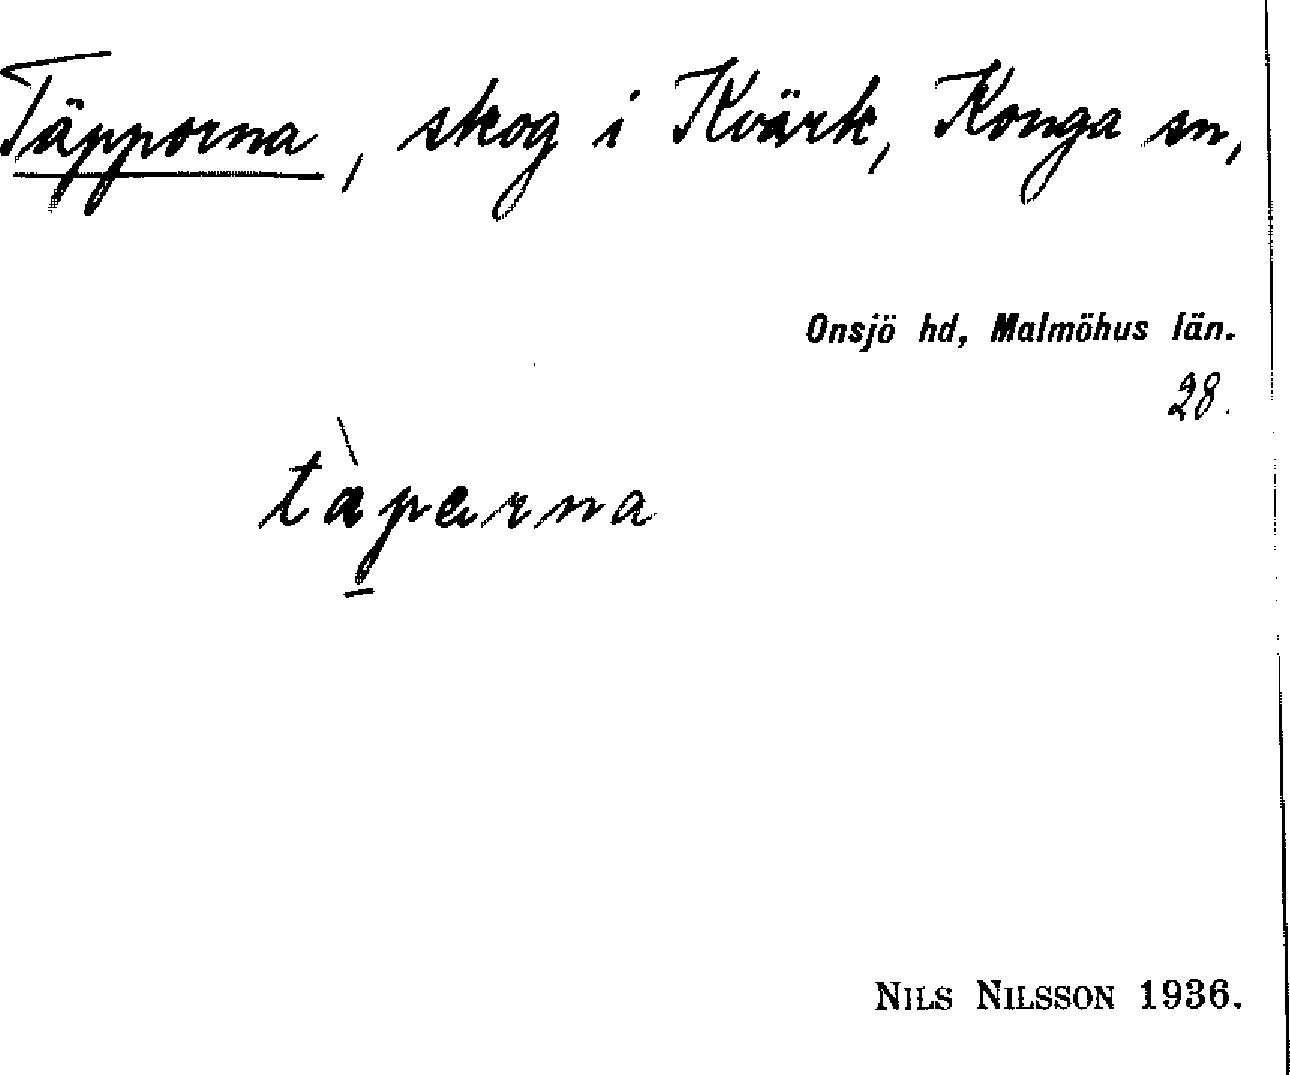 Täpporna, skog i Kvärk, Konga sn,
Onsjö hd, Malmöhus län.
28.
tàpərna
NILS NILSSON 1936.